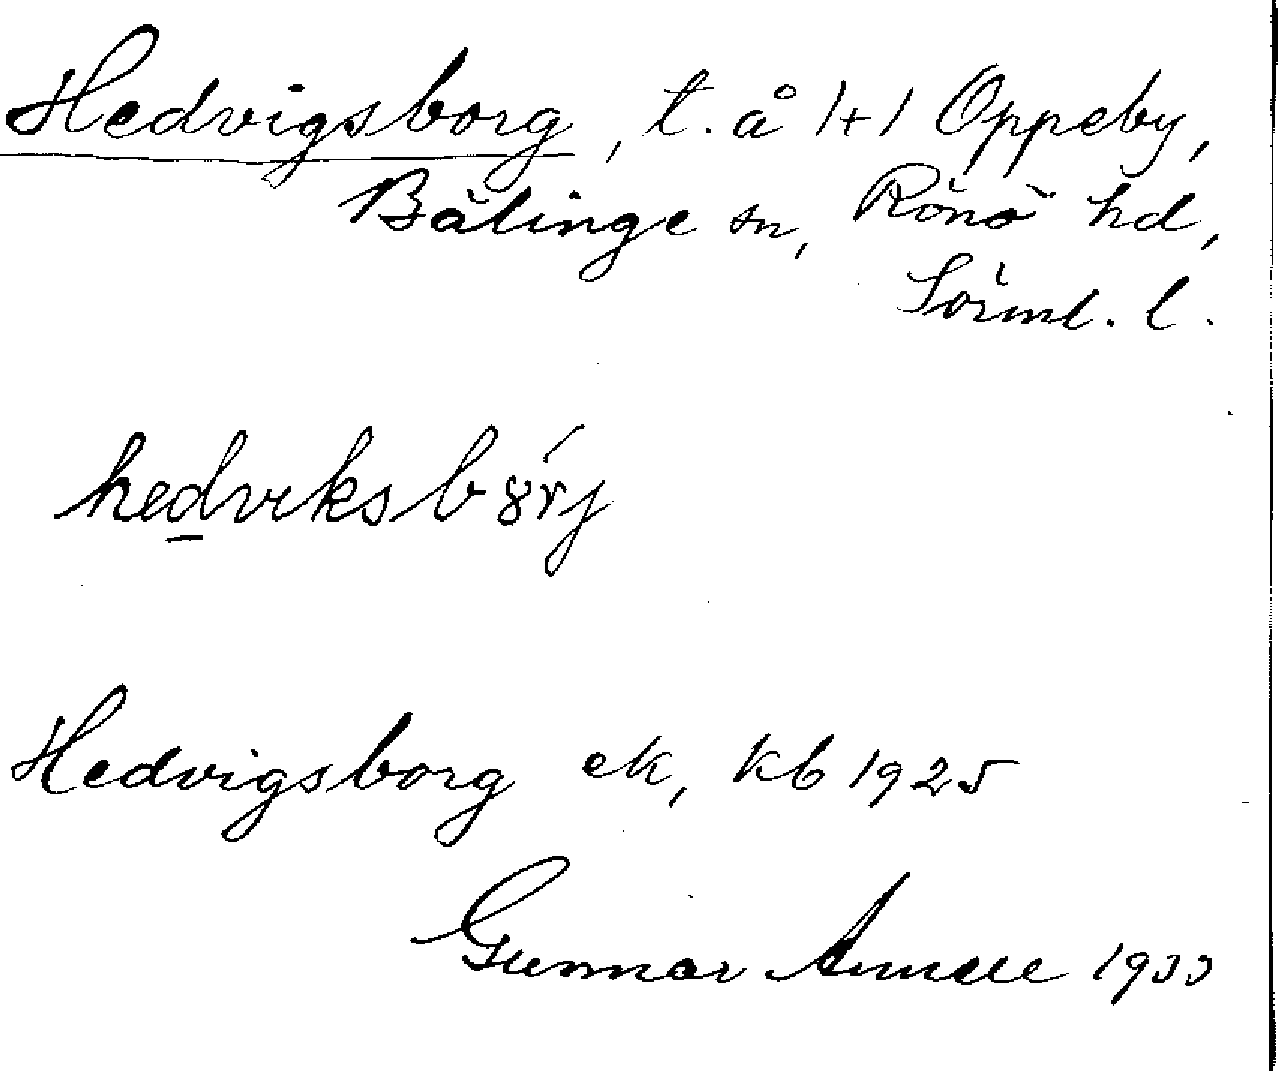 Hedvigsborg, t. å 1+1 Oppeby,
Bälinge sn, Rönö hd,
Sörml. l.
hedvıksbȣ́rj
Hedvigsborg ek, kb 1925
Gunnar Annell 1933